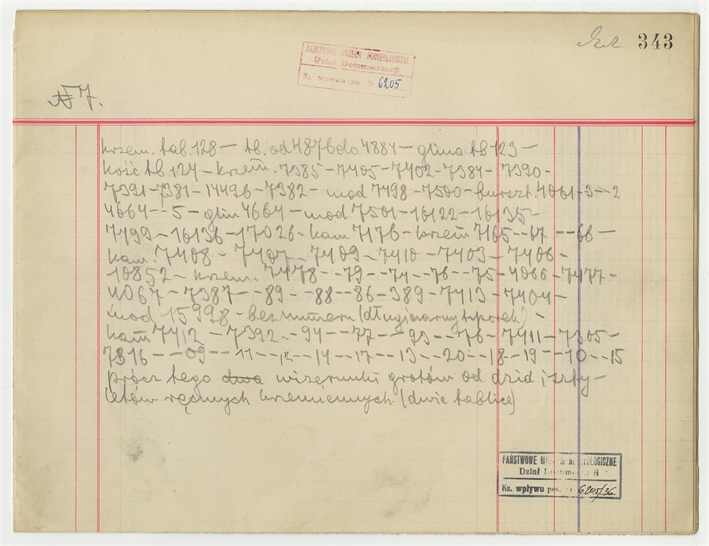 343
PAŃSTWOWE MUZEUM ARCHEOLOGICZNE
Dział Dokumentacji
Ks. wpływu poz. 6205
N 7.
krzem. tab. 128 – tb. od 4876 do 4884 – glina tb 123 –
kość tb 124 – krzem. 7385 – 7405 – 7402 – 7384 – 7390 –
7391 – 7381 – 14496 – 7382 – mod 7498 – 7500 – burszt 4061 – 3 – – 2
4664 – – 5 – glin 4664 – mod 7501 – 16122 – 16135 –
7499 – 16136 – 17026 – kam 7176 – krzem 7165 – – 67 – – 66 –
kam 7408 – 7407 – 7409 – 7410 – 7403 – 7406 –
10852 – krzem. 7478 – – 79 – – 74 – – 76 – – 75 – 4066 – 7477 –
4067 – 7387 – – 89 – – 88 – – 86 – 389 – 7413 – 7404 –
mod 15998 – bez numeru (długi toporek) –
kam 7412 – 7392 – – 94 – – 77 – – 93 – – 76 – 7411 – 7305 –
7316 – – 09 – – 11 – – 12 – – 14 – 17 – – 13 – – 20 – – 18 – 19 – – 10 – – 15
prócz tego dwa wizerunki grotów od dzid i szty–
letów ręcznych krzemiennych (dwie tablice)
PAŃSTWOWE MUZEUM ARCHEOLOGICZNE
Dział Dokumentacji
Ks. wpływu poz. 6205/36